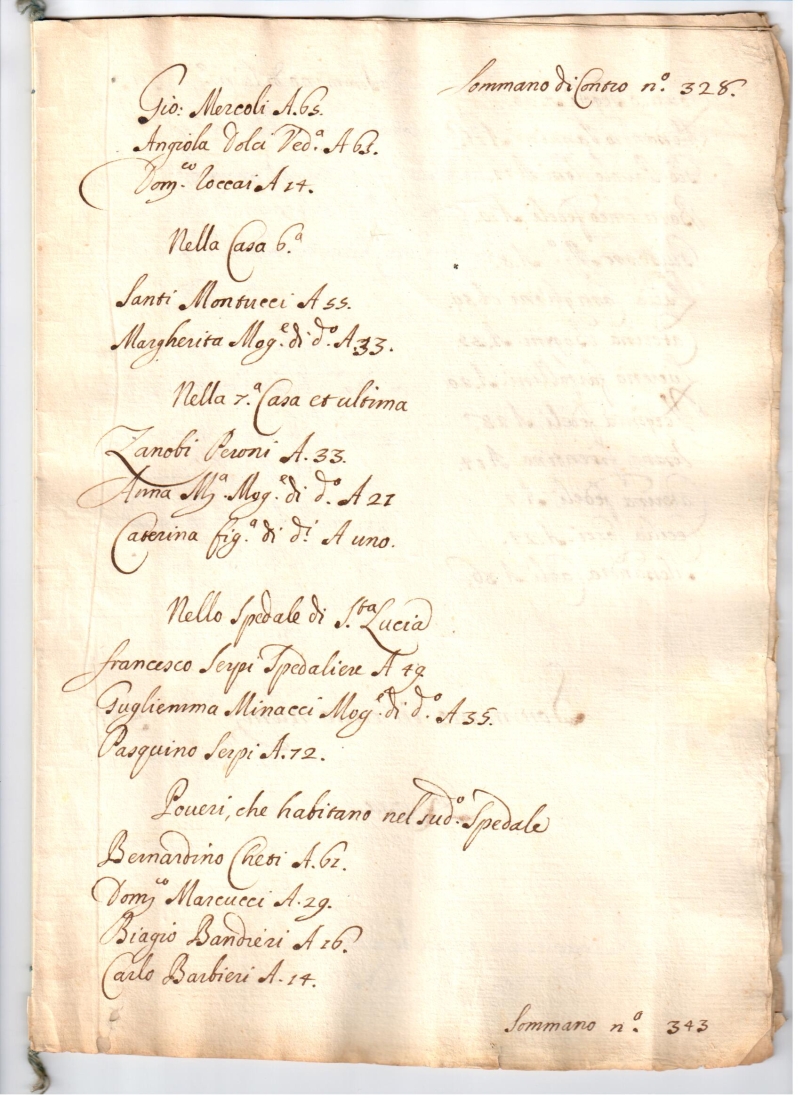 Sommano di Contro nº. 328.
Gio: Mercoli A. 65.
Angiola Dolci Ved.ª A 63.
Dom.co Toccai A 14.
Nella Casa 6.ª
Santi Montucci A 55.
Margherita Mog.e di d.º A 33.
Nella 7.ª Casa et ultima
Zanobi Peroni A. 33.
Anna M.ª Mog.e di d.º A 21
Caterina fig.ª di d.i A uno.
Nello Spedale di S.ta Lucia
francesco Serpi Spedaliere A 49
Gugliemma Minacci Mog.e di d.º A 35.
Pasquino Serpi A. 72.
Poueri, che habitano nel sud.º Spedale
Bernardino Cheti A. 61.
Dom.co Marcucci A. 29.
Biagio Bandieri A 16.
Carlo Barbieri A. 14.
Sommano nº. 343